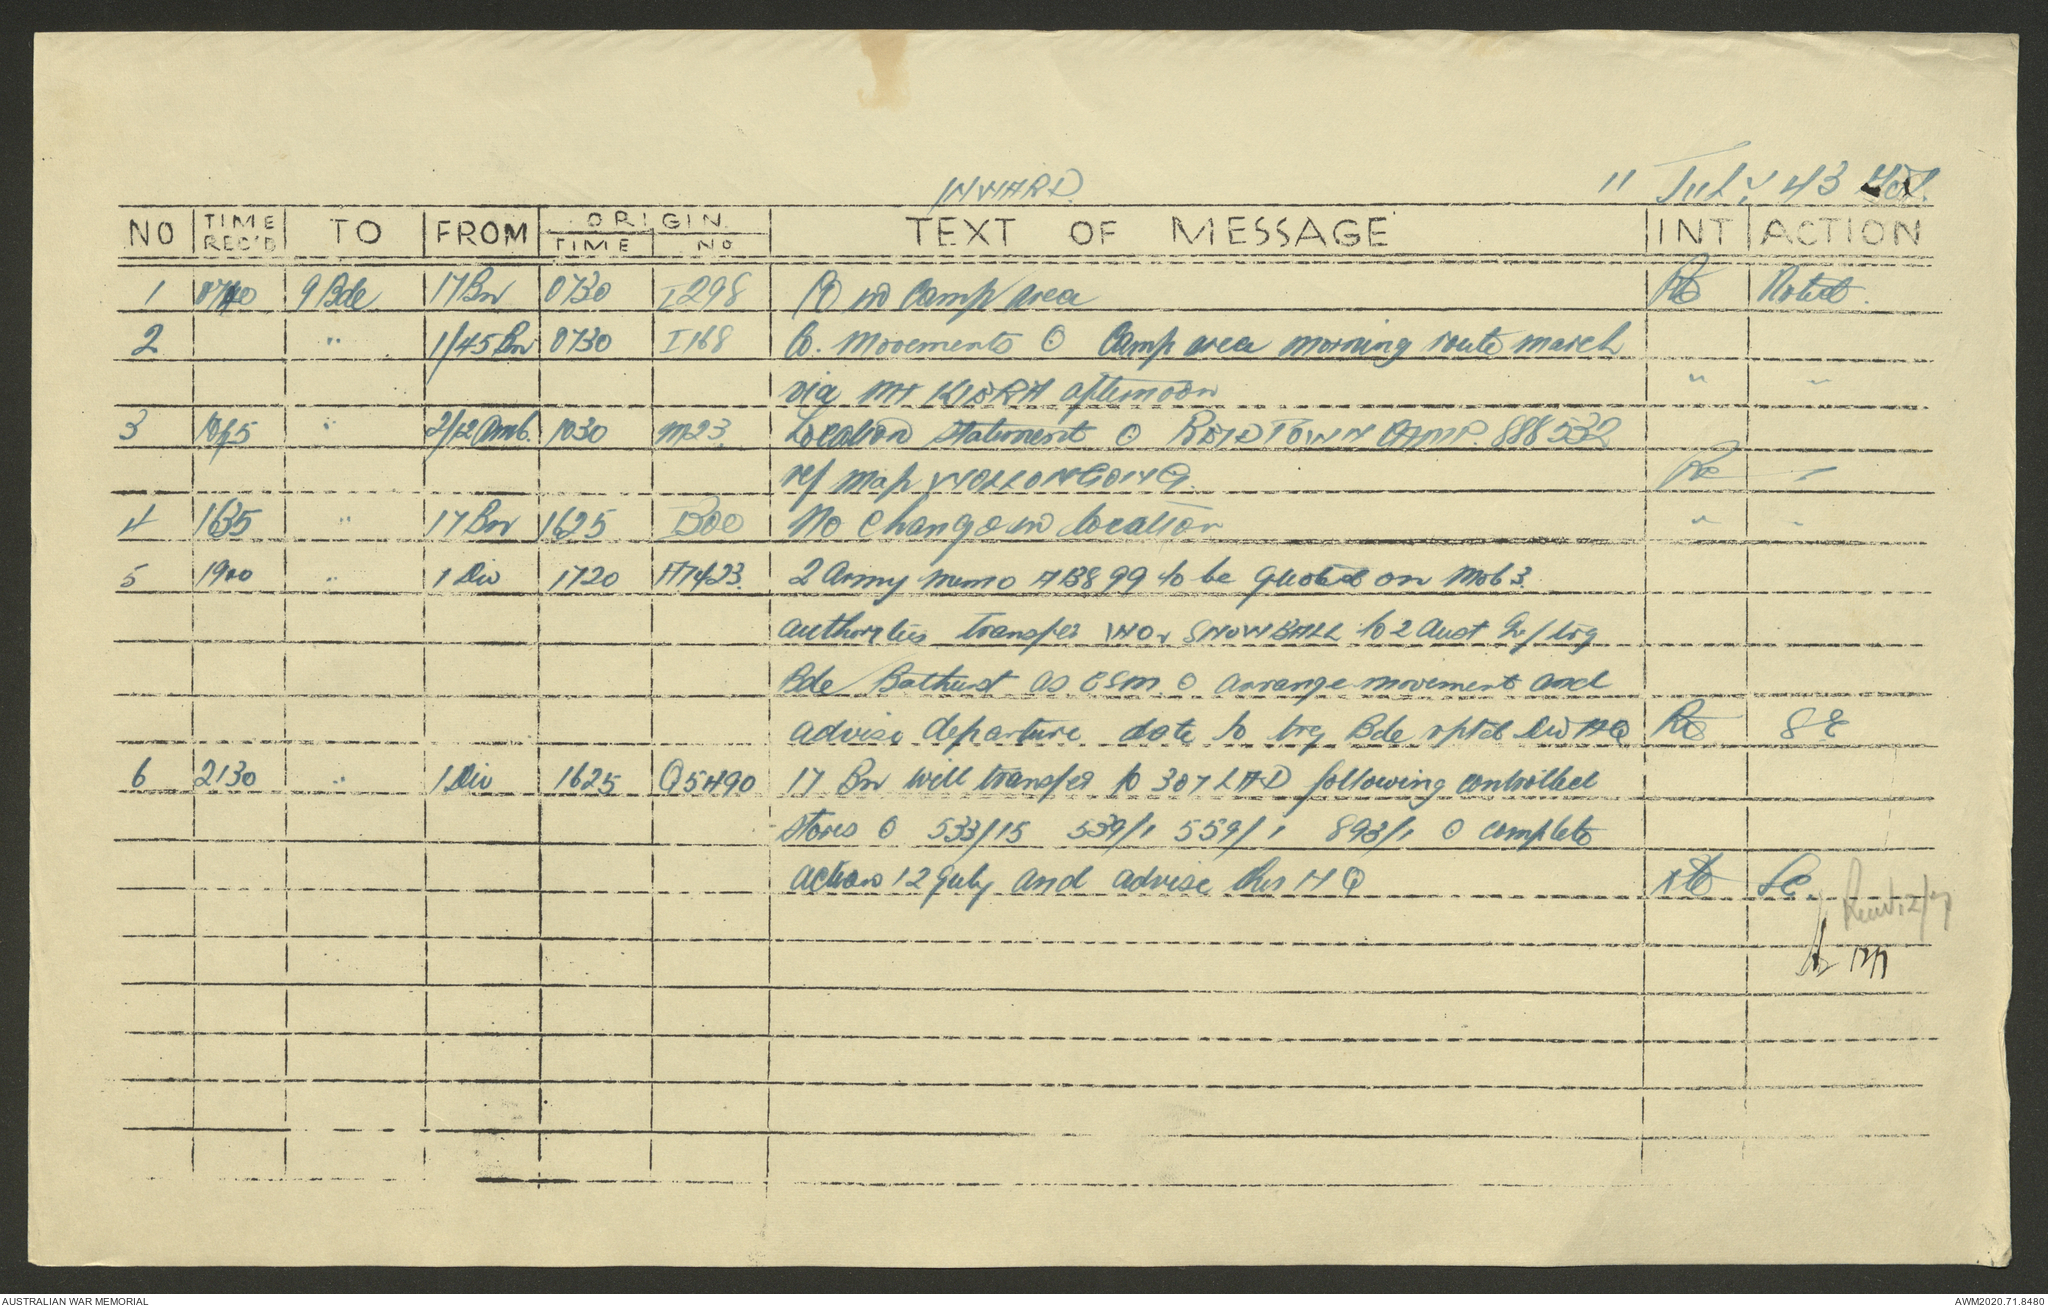 INWARD
11 July 43
NO TIME REC'D TO FROM ORIGIN TIME NO TEXT OF MESSAGE INT ACTION
1 0740 9 Bde 17 Bn 0730 I298 in Camp area Noted.
2 " 1/45 Bn 0730 I168 Co. Movements O Camp area morning route march
via Mt KIERA afternoon " "
3 " 2/12 Amb. 1030 M23 Location Statement O CAMP. 888532
ref map WOLLONGONG.
4 1635 " 17 Bn 1625 I300 No Change in location " "
5 1900 " 1 Div 1720 A7423 2 Army memo AB899 to be quoted on Mob 3.
authorities transfer SNOWBALL to 2 Aust trg
Bde Bathurst as CSM O arrange movement and
advise departure date to trg Bde rptd Div HQ
6 2130 " 1 Div 1625 Q5490 17 Bn will transfer to 307 LAD following controlled
stores O 533/15 539/1 559/1 893/1 O complete
action 12 July and advise this HQ SC.
12/7
AUSTRALIAN WAR MEMORIAL
AWM2020.71.8480